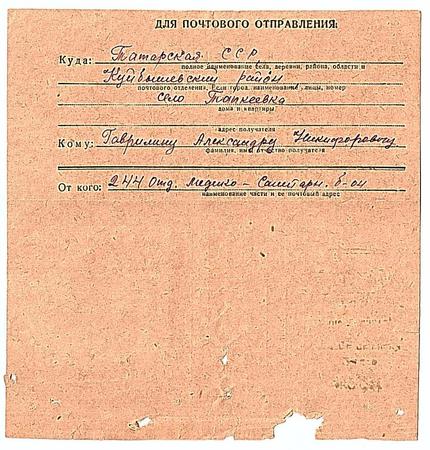 ДЛЯ ПОЧТОВОГО ОТПРАВЛЕНИЯ:
Куда: Татарская ССР
полное наименование села, деревни, района, области и
Куйбышевский район
почтового отделения. Если город, наименование улицы, номер
село Тапкеевка
дома и квартиры
адрес получателя
Кому: Гаврилину Александру Никифоровичу
фамилия, имя отчество получателя
От кого: 244 Отд. Медико-Санитарн. б-он
наименование части и ее почтовый адрес